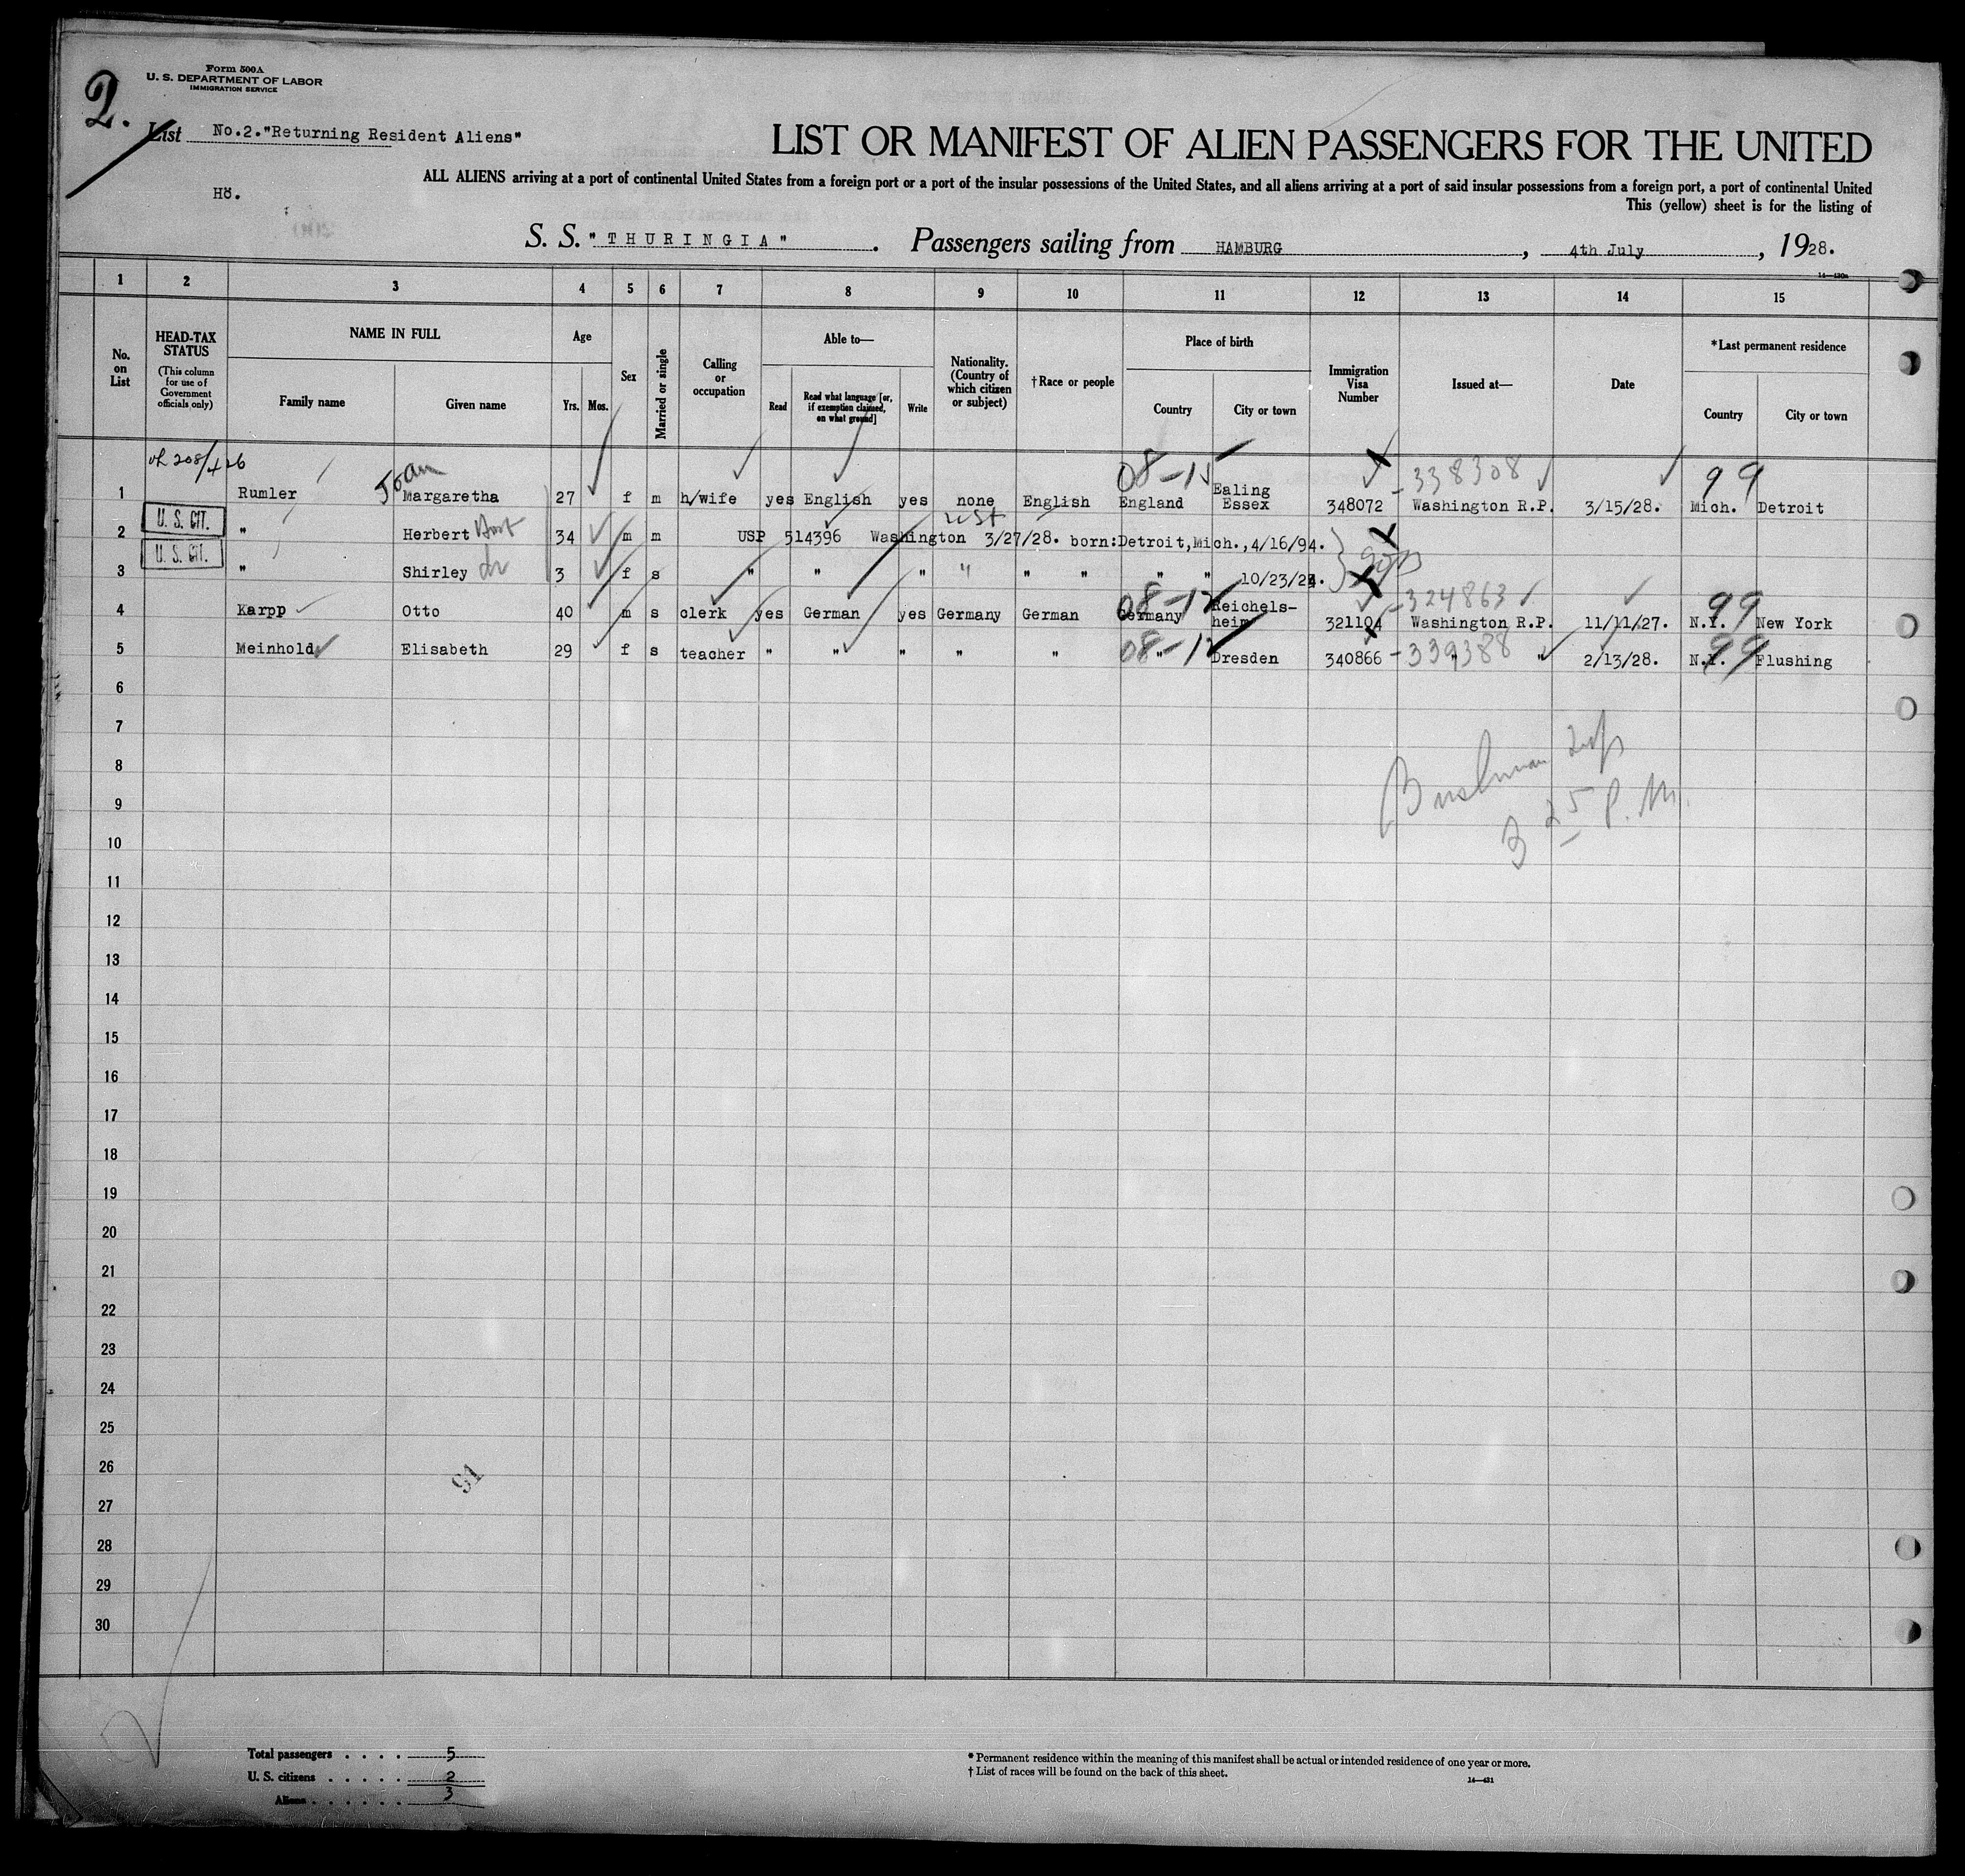 2.
Form 500A
U. S. DEPARTMENT OF LABOR
IMMIGRATION SERVICE
List No.2."Returning Resident Aliens"
LIST OR MANIFEST OF ALIEN PASSENGERS FOR THE UNITED
ALL ALIENS arriving at a port of continental United States from a foreign port or a port of the insular possessions of the United States, and all aliens arriving at a port of said insular possessions from a foreign port, a port of continental United
Hö.
This (yellow) sheet is for the listing of
S. S. "THURINGIA". Passengers sailing from HAMBURG, 4th July, 1928.
1 2 3 4 5 6 7 8 9 10 11 12 13 14 15
No. on List
HEAD-TAX STATUS
(This column for use of Government officials only)
NAME IN FULL
Family name Given name
Age
Yrs. Mos.
Sex
Married or single
Calling or occupation
Able to—
Read
Read what language [or, if exemption claimed, on what ground]
Write
Nationality. (Country of which citizen or subject)
†Race or people
Place of birth
Country City or town
Immigration Visa Number
Issued at—
Date
*Last permanent residence
Country City or town
Joan 08-1 -338308 99
1 Rumler Margaretha 27 f m h/wife yes English yes none English England Ealing Essex 348072 Washington R.P. 3/15/28. Mich. Detroit
U. S. CIT.
2 " Herbert 34 m m USP 514396 Washington 3/27/28. born:Detroit,Mich.,4/16/94.
U. S. CIT.
3 " Shirley 3 f s " " " " " " " " 10/23/24.
08-1 -324863 99
4 Karpp Otto 40 m s clerk yes German yes Germany German Germany Reichels-heim 321104 Washington R.P. 11/11/27. N.Y. New York
08-1 -339388 99
5 Meinhold Elisabeth 29 f s teacher " " " " " " Dresden 340866 " " 2/13/28. N.Y. Flushing
6
7
8
9
3 25 P.M.
10
11
12
13
14
15
16
17
18
19
20
21
22
23
24
25
26
91
27
28
29
30
Total passengers . . . . 5
U. S. citizens . . . . . 2
Aliens . . . . . . 3
* Permanent residence within the meaning of this manifest shall be actual or intended residence of one year or more.
† List of races will be found on the back of this sheet.
14—431